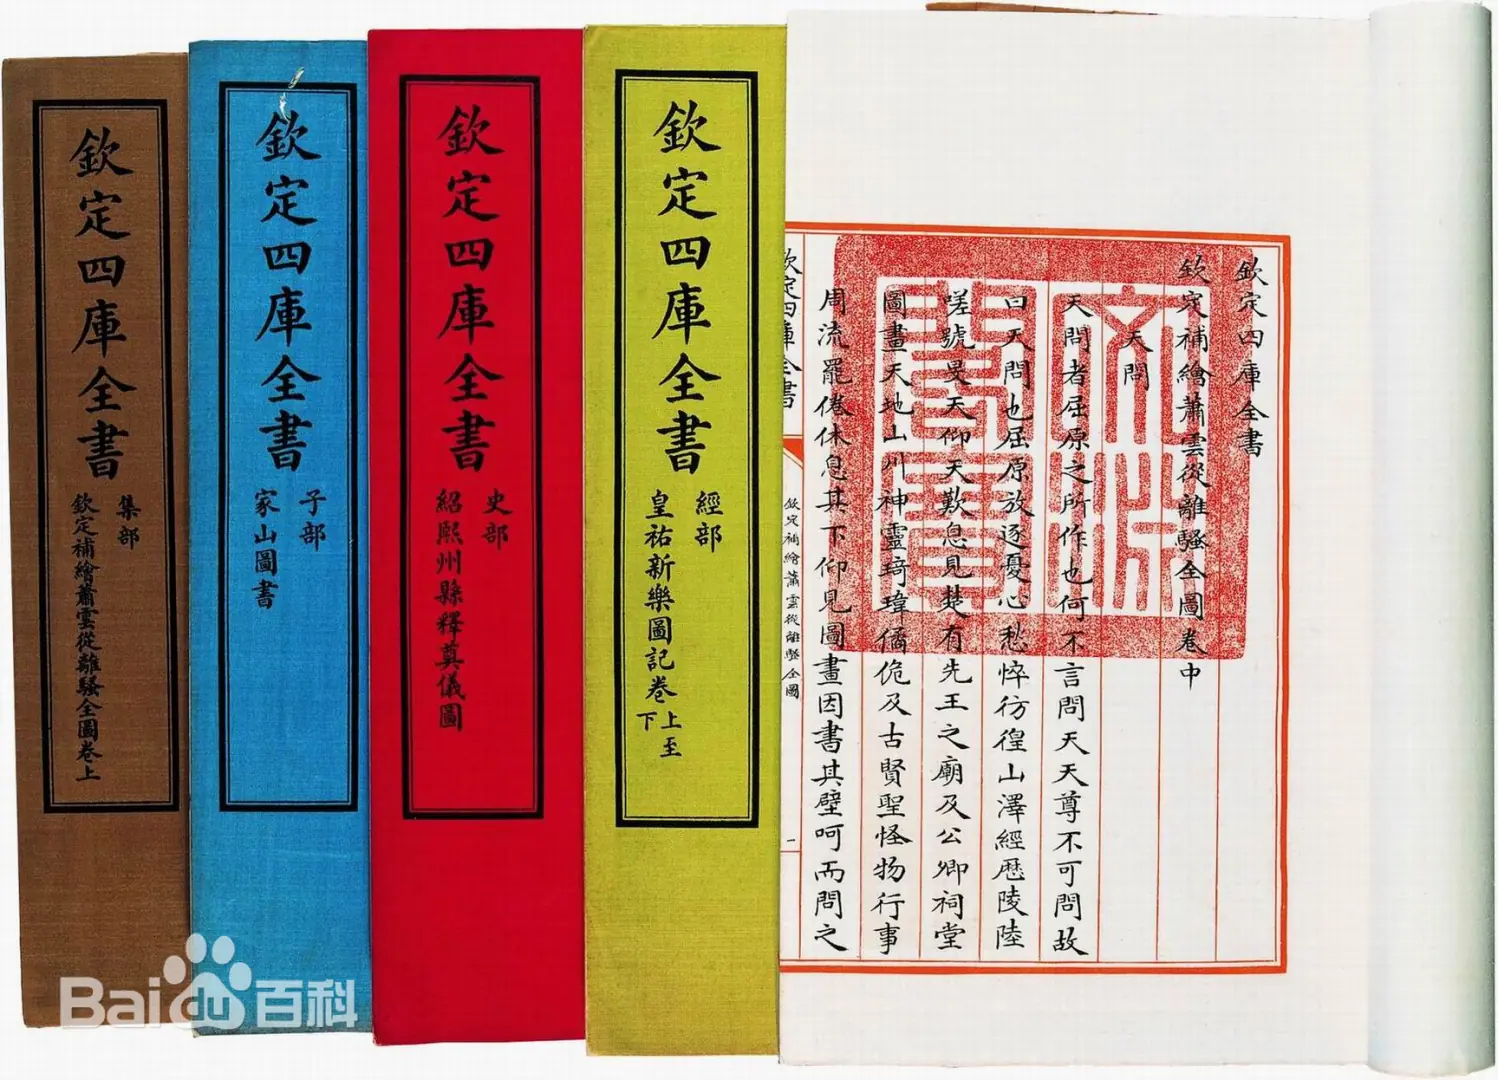 欽定四庫全書
欽定補繪蕭雲從離騷全圖卷中
天問
天問者屈原之所作也何不言問天天尊不可問故
曰天問也屈原放逐憂心愁悴彷徨山澤經歷陵陸
嗟號旻天仰天歎息見楚有先王之廟及公卿祠堂
圖畫天地山川神靈琦瑋僪佹及古賢聖怪物行事
周流罷倦休息其下仰見圖畫因書其壁呵而問之
文淵
閣寶
欽定四庫全書
欽定補繪蕭雲從離騷全圖
一
欽定四庫全書
經部
皇祐新樂圖記卷上至下
欽定四庫全書
史部
紹熙州縣釋奠儀圖
欽定四庫全書
子部
家山圖書
欽定四庫全書
集部
欽定補繪蕭雲從離騷全圖卷上
Baidu百科